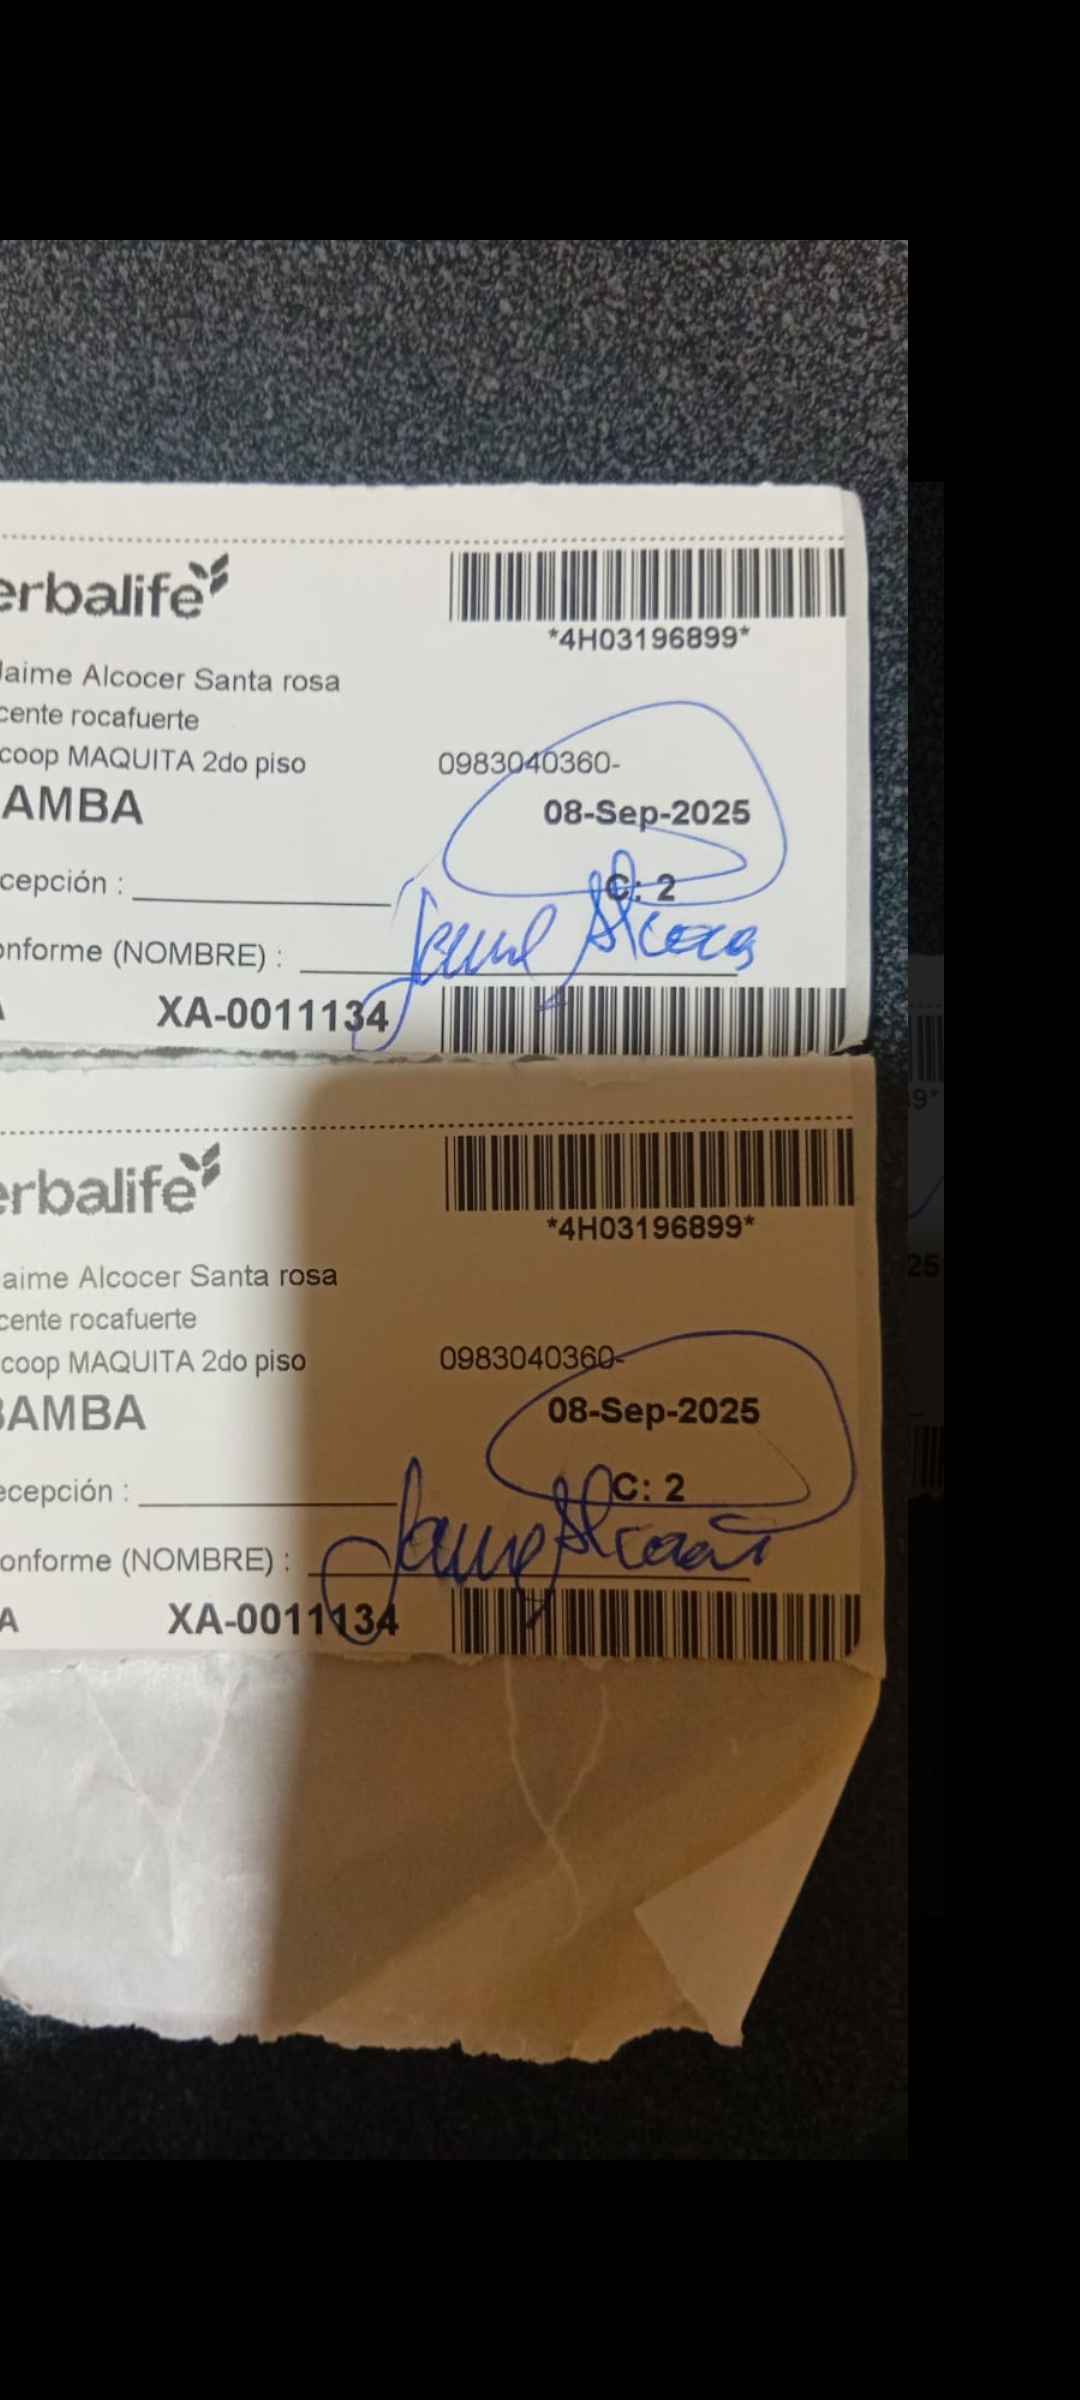 erbalife
*4H03196899*
Jaime Alcocer Santa rosa
cente rocafuerte
coop MAQUITA 2do piso 0983040360-
AMBA 08-Sep-2025
cepción :
C: 2
onforme (NOMBRE) :
XA-0011134
erbalife
*4H03196899*
aime Alcocer Santa rosa
cente rocafuerte
coop MAQUITA 2do piso 0983040360-
BAMBA 08-Sep-2025
ecepción :
C: 2
onforme (NOMBRE) :
A XA-0011134
9*
25